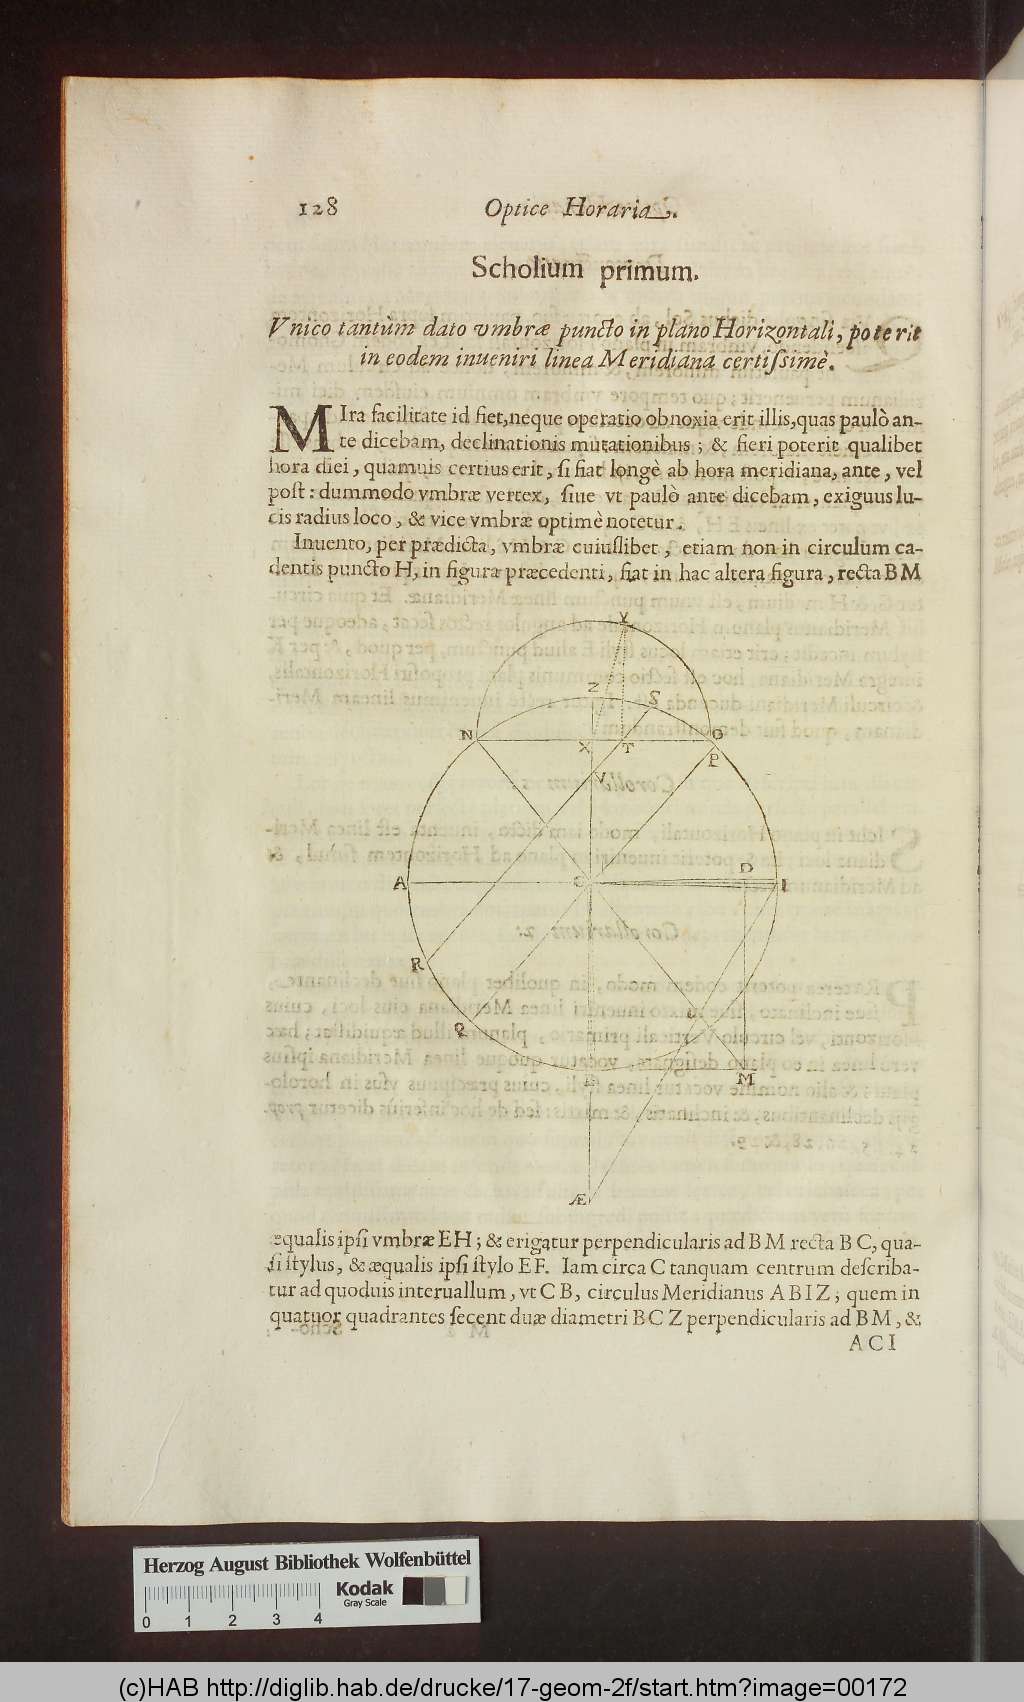 128 Optice Horaria.
Scholium primum.
Vnico tantùm dato vmbræ puncto in plano Horizontali, poterit
in eodem inueniri linea Meridiana certiſsimè.
MIra facilitate id fiet, neque operatio obnoxia erit illis, quas paulò an-
te dicebam, declinationis mutationibus; & fieri poterit qualibet
hora diei, quamuis certius erit, ſi fiat longè ab hora meridiana, ante, vel
poſt: dummodo vmbræ vertex, ſiue vt paulò ante dicebam, exiguus lu-
cis radius loco, & vice vmbræ optimè notetur.
Inuento, per prædicta, vmbræ cuiuſlibet, etiam non in circulum ca-
dentis puncto H, in figura præcedenti, fiat in hac altera figura, recta B M
Y
Z S
N X T O
P
V
A C D I
R
Q
B M
Æ
æqualis ipſi vmbræ E H; & erigatur perpendicularis ad B M recta B C, qua-
ſi ſtylus, & æqualis ipſi ſtylo E F. Iam circa C tanquam centrum deſcriba-
tur ad quoduis interuallum, vt C B, circulus Meridianus A B I Z; quem in
quatuor quadrantes ſecent duæ diametri B C Z perpendicularis ad B M, &
A C I
Herzog August Bibliothek Wolfenbüttel
Kodak
Gray Scale
0 1 2 3 4
(c)HAB http://diglib.hab.de/drucke/17-geom-2f/start.htm?image=00172